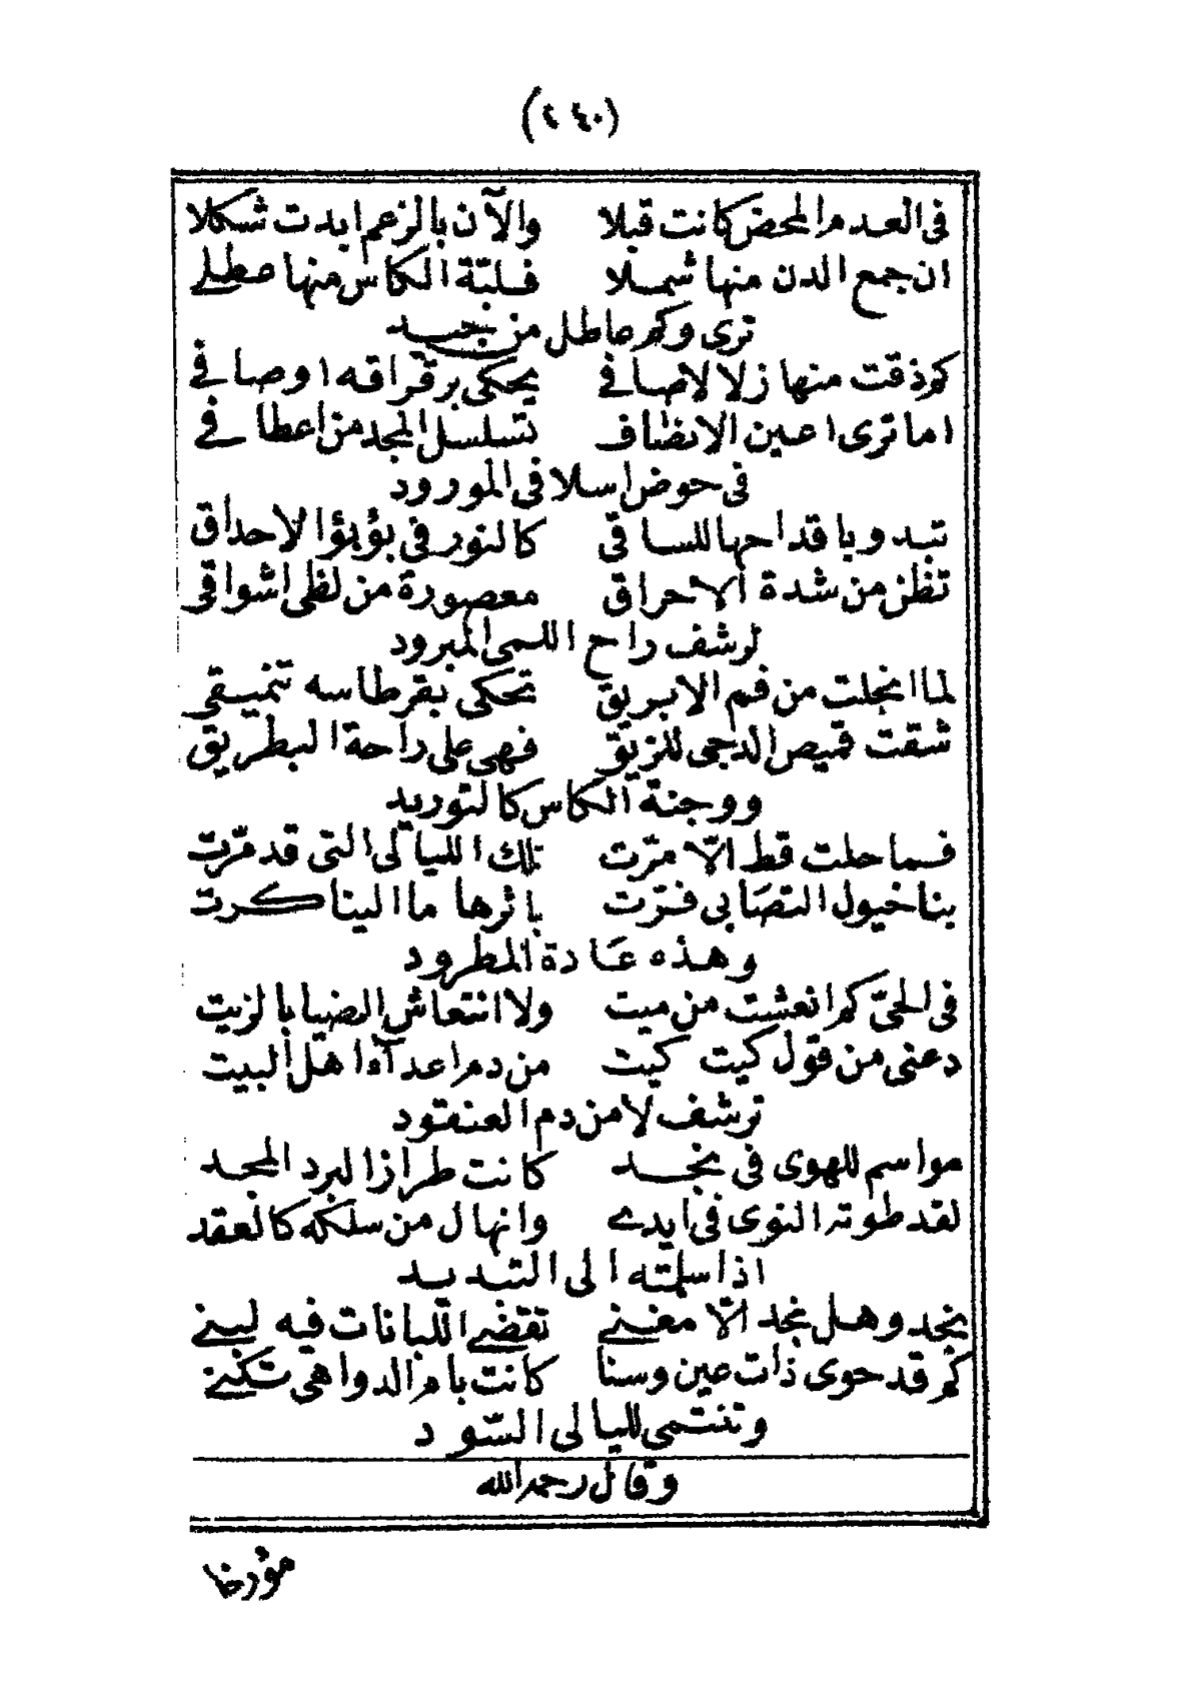 (٤٤٠)
فى العدم المحض كانت قبلا والآن بالزعم ابدت شكلا
ان جمع الدن منها شملا فلبّة الكاس منها صطلے
ترى وكم عاطل من جيد
كم ذقت منها زلالا صافے يحكى برقراقه اوصافے
اما ترى اعين الانصاف تسلسل المجد من اعطافے
فى حوض اسلافى المورود
تبدو باقداحها للساقى كالنور فى بؤبؤ الاحداق
تظن من شدة الاحراق معصورة من لظى اشواقى
لرشف راح اللمى المبرود
لما انجلت من فم الابريق تحكى بقرطاسه تنميقى
شقت قميص الدجى للزيق فهى على راحة البطريق
ووجنة الكاس كالتوريد
فما حلت قط الّا مرّت تلك الليالى التى قد مرّت
بنا خيول التصَابى فرّت باثرها ما الينا كرت
وهذه عَادة المطرود
فى الحىّ كم انعشت من ميت ولا انتعاش الضيا بالزيت
دعنى من قول كيت كيت من دم اعدآء اهل البيت
ترشف لا من دم العنقود
مواسم للهوى فى نجد كانت طرازا لبرد المجد
لقد طوته النوى فى ايدے وانهال من سلكه كالعقد
اذا سلمته الى التبديد
بنجد وهل نجد الّا مغنے تقضے اللبانات فيه لبنے
كم قد حوى ذات عين وسنا كانت بام الدواهى تكنے
وتنتمى لليالى السّود
وقال رحمه الله
مؤرخا